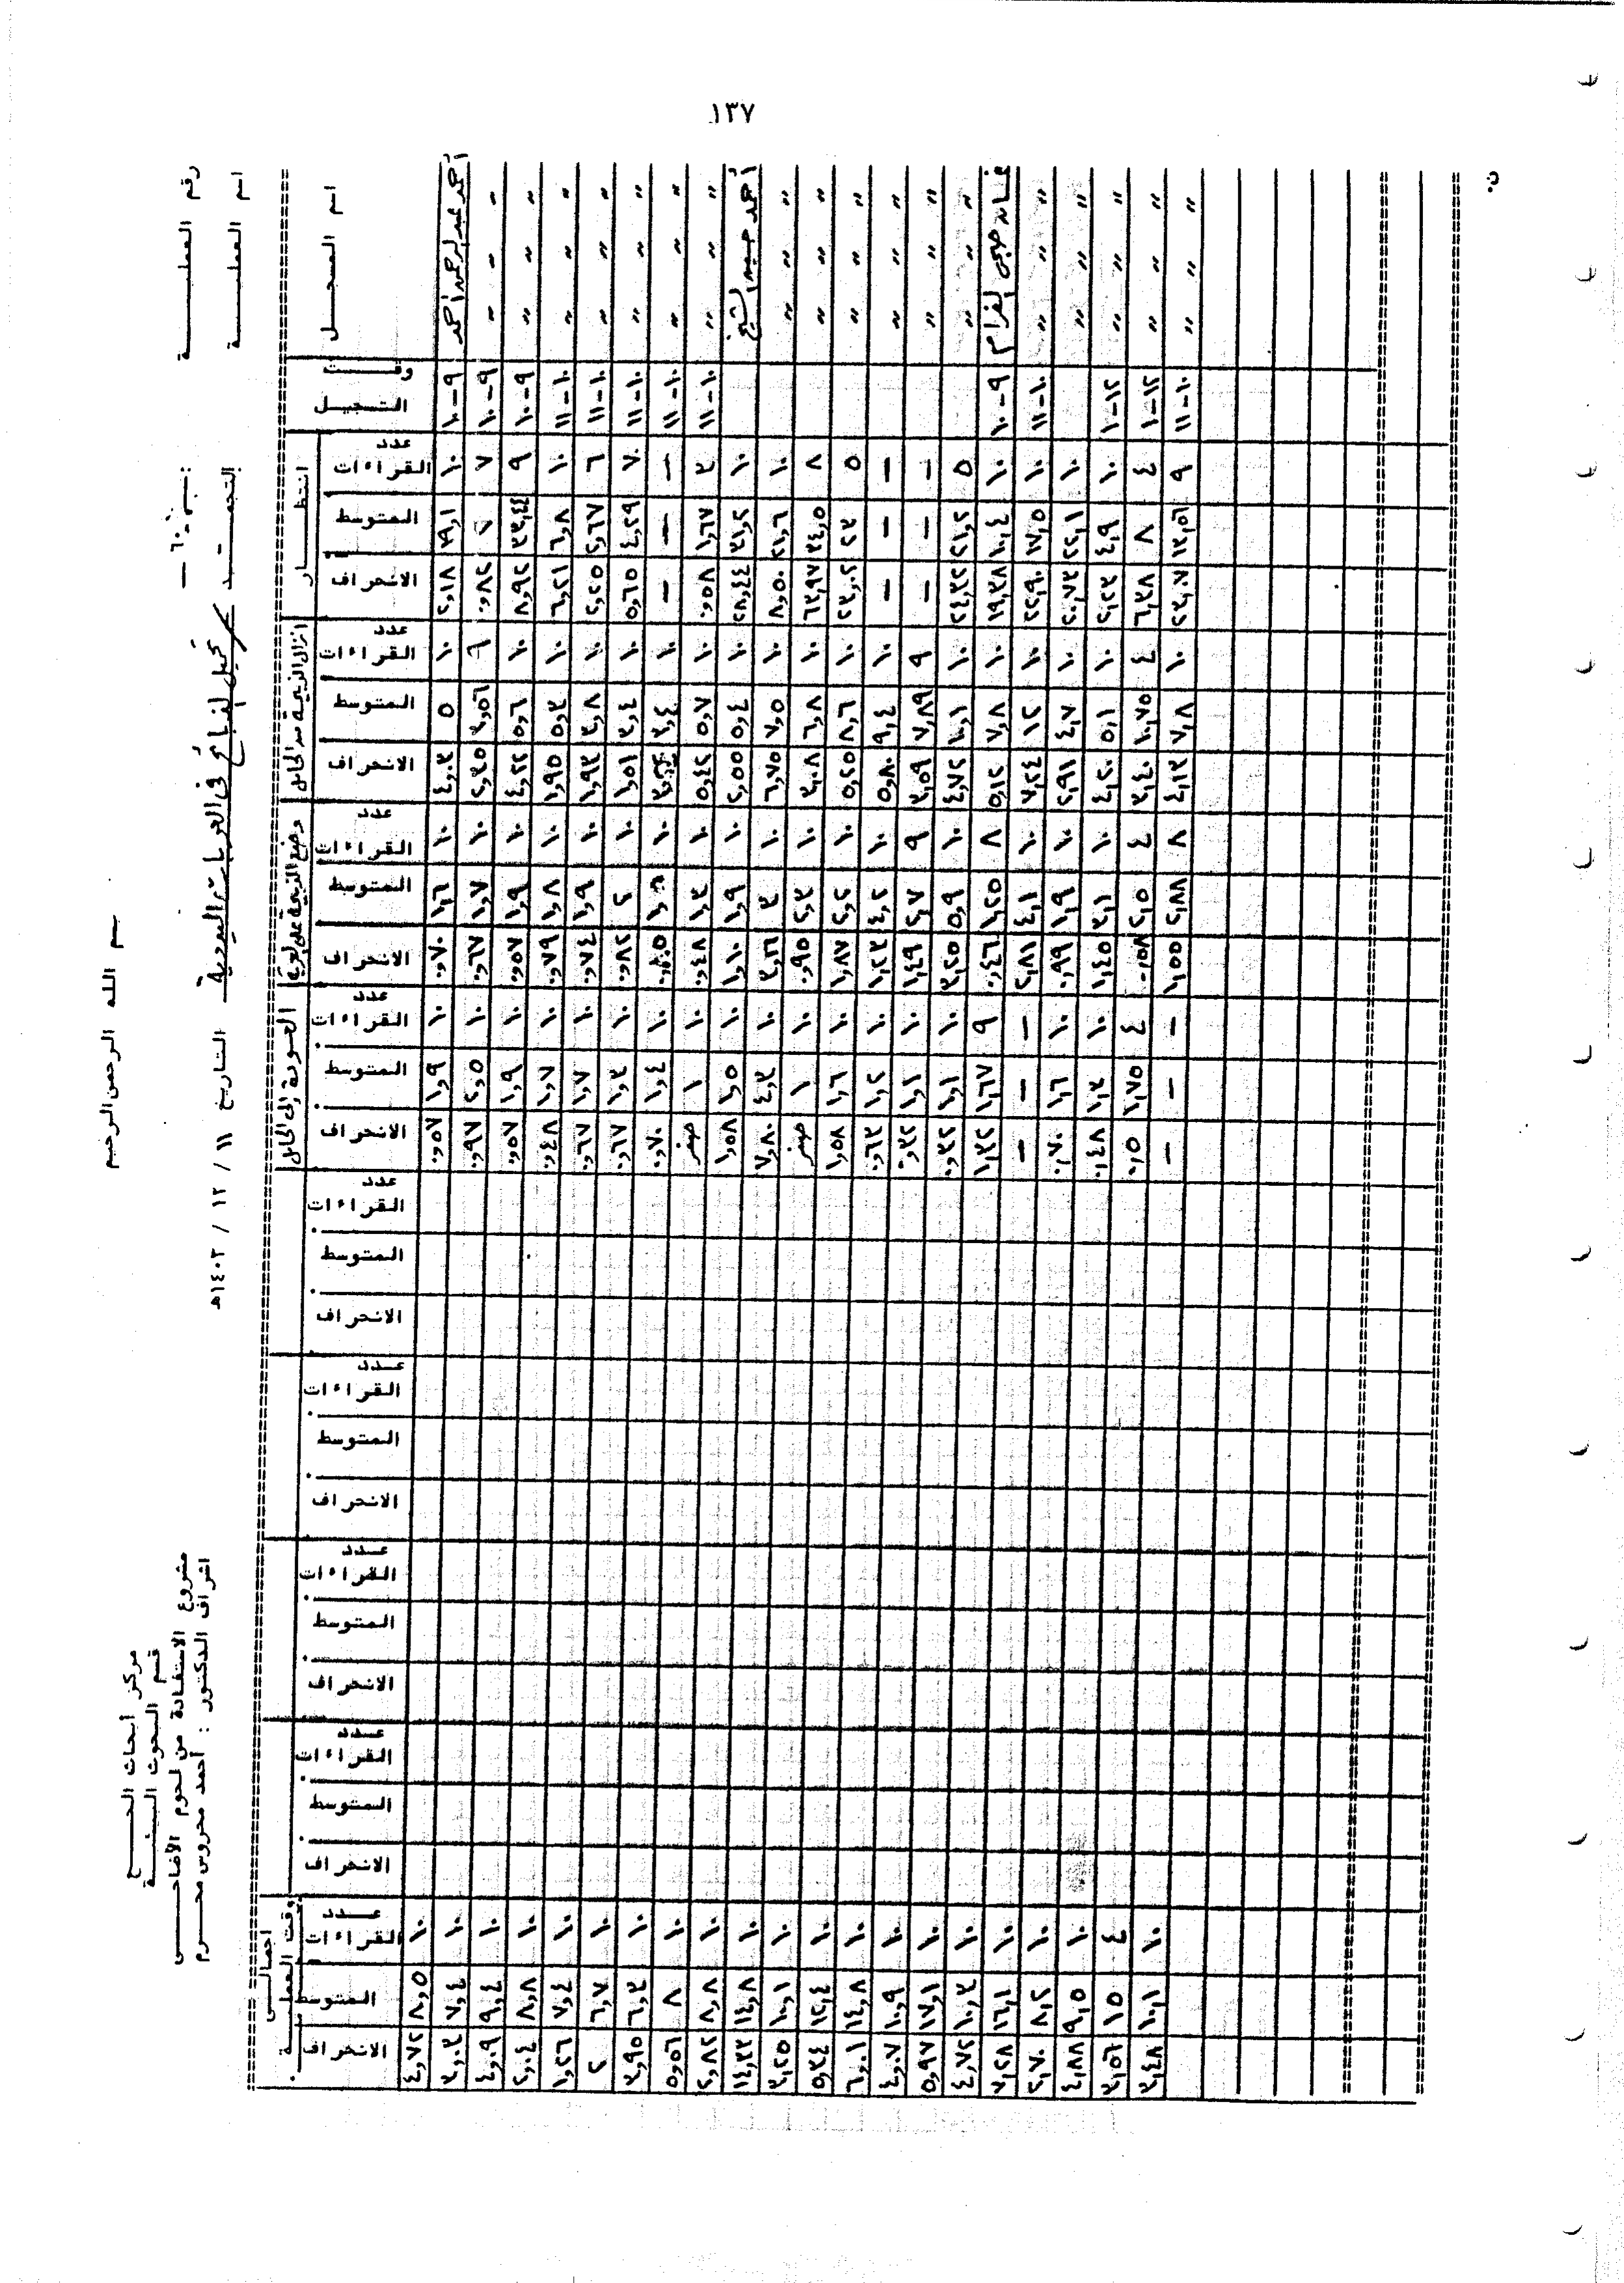 ١٣٧
بسم الله الرحمن الرحيم
مركز أبحاث الحج
قسم البحوث البيئية
مشروع الاستفادة من لحوم الأضاحى
اشراف الدكتور : أحمد محروس محرم
رقم العملية
اسم العملية : تحميل الذبائح فى العربات اليدوية
التاريخ ١١ / ١٢ / ١٤٠٣هـ
اسم المسجل
وقت التسجيل
انتظار
انزال الذبيحة من الحامل
وضع الذبيحة على العربة
العودة إلى الحامل
اجمالى وقت العملية
عدد القراءات المتوسط الانحراف
عدد القراءات المتوسط الانحراف
عدد القراءات المتوسط الانحراف
عدد القراءات المتوسط الانحراف
عدد القراءات المتوسط الانحراف
عدد القراءات المتوسط الانحراف
عدد القراءات المتوسط الانحراف
عدد القراءات المتوسط الانحراف
عدد القراءات المتوسط الانحراف
أحمد عبد الرحمن أحمد ٩-١٠ ١٠ ٢,١٨ ١٠ ٥ ٤,٠٣ ١٠ ١,٦ ٠,٧٠ ١٠ ١,٩ ٠,٥٧ ١٠ ٨,٥ ٤,٧٢
" " " ٩-١٠ ٧ ٠,٨٢ ٩ ٣,٥٦ ٢,٣٥ ١٠ ١,٧ ٠,٦٧ ١٠ ٢,٥ ٠,٩٧ ١٠ ٧,٤ ٣,٠٣
" " " ٩-١٠ ٩ ٣٣,٤٤ ٨,٩٢ ١٠ ٥,٦ ٤,٢٢ ١٠ ١,٩ ٠,٥٧ ١٠ ١,٩ ٠,٥٧ ١٠ ٩,٤ ٤,٠٩
" " " ١٠-١١ ١٠ ٦,٨ ٦,٢١ ١٠ ٥,٣ ١,٩٥ ١٠ ١,٨ ٠,٧٩ ١٠ ١,٧ ٠,٤٨ ١٠ ٨,٨ ٢,٠٤
" " " ١٠-١١ ٦ ٢,٦٧ ٢,٢٥ ١٠ ٣,٨ ١,٩٣ ١٠ ١,٩ ٠,٧٤ ١٠ ١,٧ ٠,٦٧ ١٠ ٧,٤ ١,٢٦
" " " ١٠-١١ ٧ ٤,٢٩ ٥,٦٥ ١٠ ٣,٤ ١,٥١ ١٠ ٢ ٠,٨٢ ١٠ ١,٣ ٠,٦٧ ١٠ ٦,٧ ٢
" " " ١٠-١١ — — — ١٠ ٣,٤ ١٠ ١,٥ ١٠ ١,٤ ٠,٧٠ ١٠ ٦,٣ ٣,٩٥
" " " ١٠-١١ ٣ ١,٦٧ ٠,٥٨ ١٠ ٥,٧ ٥,٤٢ ١٠ ١,٣ ٠,٤٨ ١٠ ١ صفر ١٠ ٨ ٥,٥٦
أحمد حسين الشيخ ١٠ ٣١,٢ ٢٨,٤٤ ١٠ ٥,٤ ٢,٥٥ ١٠ ١,٩ ١,١٠ ١٠ ١,٥ ١,٥٨ ١٠ ٨,٨ ٢,٨٢
" " " ١٠ ٢١,٦ ٨,٥٠ ١٠ ٧,٥ ٦,٧٥ ١٠ ٣ ٣,١٦ ١٠ ٤,٣ ٧,٨٠ ١٠ ١٤,٨ ١٤,٣٣
" " " ٨ ٣٤,٥ ٦٣,٩٧ ١٠ ٦,٨ ٣,٠٨ ١٠ ٢,٣ ٠,٩٥ ١٠ ١ صفر ١٠ ١٠,١ ٣,٢٥
" " " ٥ ٢٣ ٢٣,٠٢ ١٠ ٨,٦ ٥,٢٥ ١٠ ٢,٢ ١,٨٧ ١٠ ١,٦ ١,٥٨ ١٠ ١٢,٤ ٥,٣٤
" " " — — — ١٠ ٩,٤ ٥,٨٠ ١٠ ٤,٢ ١,٢٣ ١٠ ١,٢ ٠,٦٣ ١٠ ١٤,٨ ٦,٠١
" " " — — — ٩ ٧,٨٩ ٣,٥٩ ٩ ٢,٧ ١,٤٩ ١٠ ١,١ ٠,٣٢ ١٠ ١٠,٩ ٤,٠٧
" " " ٥ ٢١,٢ ٢٤,٣٢ ١٠ ١٠,١ ٤,٧٢ ١٠ ٥,٩ ٣,٢٥ ١٠ ١,١ ٠,٣٢ ١٠ ١٧,١ ٥,٩٧
غسان حجى الفرام ٩-١٠ ١٠ ١٠,٤ ١٩,٣٨ ١٠ ٧,٨ ٥,١٢ ٨ ١,٢٥ ٠,٤٦ ٩ ١,٦٧ ١,٣٢ ١٠ ١٠,٣ ٤,٧٢
" " " ١٠-١١ ١٠ ١٧,٥ ٢٢,٩٠ ١٠ ١٢ ٧,٢٤ ١٠ ٤,١ ٢,٨١ — — — ١٠ ١٦,١ ٧,٢٨
" " " ١٠ ٢٢,١ ٢٠,٧٣ ١٠ ٤,٧ ٢,٩١ ١٠ ١,٩ ٠,٩٩ ١٠ ١,٦ ٠,٧٠ ١٠ ٨,٢ ٢,٧٠
" " " ١٢-١ ١٠ ٤,٩ ٢,٢٣ ١٠ ٥,١ ٤,٢٠ ١٠ ٣,١ ١,٤٥ ١٠ ١,٣ ٠,٤٨ ١٠ ٩,٥ ٤,٨٨
" " " ١٢-١ ٤ ٨ ٦,٣٨ ٤ ١٠,٧٥ ٣,٤٠ ٤ ٢,٥ ٠,٥٨ ٤ ١,٧٥ ٠,٥ ٤ ١٥ ٣,٥٦
" " " ١٠-١١ ٩ ١٣,٥٦ ٢٣,٠٧ ١٠ ٧,٨ ٤,١٣ ٨ ٢,٨٨ ١,٥٥ — — — ١٠ ١٠,١ ٣,٤٨